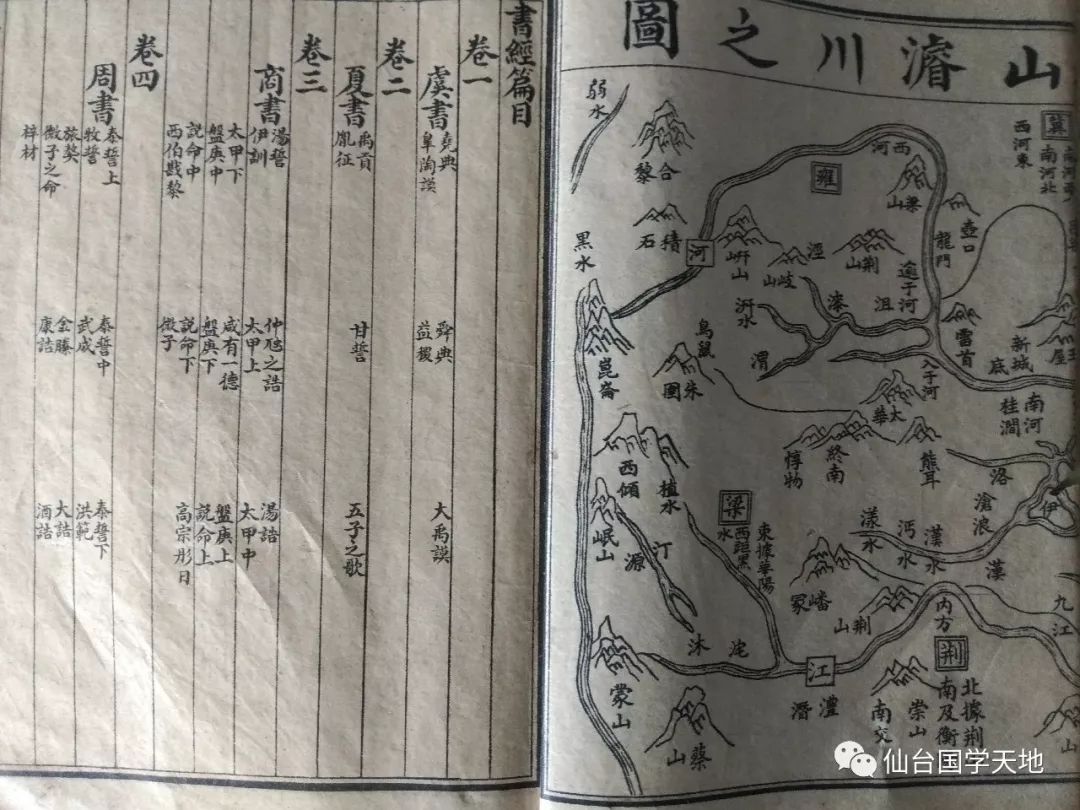 山濬川之圖
冀
南河北
西河東
西河
雍
梁山
壺口
龍門
弱水
合黎
積石
河
岍山
岐山
涇
荊山
逾于河
黑水
汧水
漆
沮
渭
雷首
王屋
新城
底
鳥鼠
朱圉
入于河
太華
崑崙
南河
桂澗
終南
惇物
熊耳
洛
伊
西傾
桓水
梁
東據華陽
西距黑水
滄浪
漢
漢水
沔水
漾水
岷山
嶓冢
荊山
內方
九江
荊
北據荊
南及衡
沱
江
澧
潛
蒙山
蔡山
崇山
南交
書經篇目
卷一
虞書 堯典 舜典 大禹謨
臯陶謨 益稷
卷二
夏書 禹貢 甘誓 五子之歌
胤征
卷三
商書 湯誓 仲虺之誥 湯誥
伊訓 太甲上 太甲中
太甲下 咸有一德 盤庚上
盤庚中 盤庚下 說命上
說命中 說命下 高宗肜日
西伯戡黎 微子
卷四
周書 泰誓上 泰誓中 泰誓下
牧誓 武成 洪範
旅獒 金縢 大誥
微子之命 康誥 酒誥
梓材
仙台国学天地